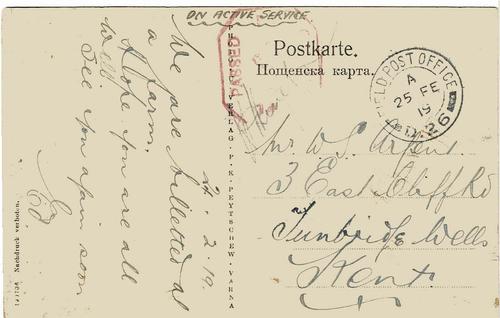 ON ACTIVE SERVICE
PASSED
Postkarte.
Пощенска карта.
FIELD POST OFFICE
A
25 FE
19
D.26
24.2.19.
We are billetted at
a farm.
Hope you are all
well.
See you again soon
Mr W S
3 East Cliff Rd
Tunbridge Wells
Kent.
VERLAG P. K. PEYTSCHEW - VARNA
Nachdruck verboten.